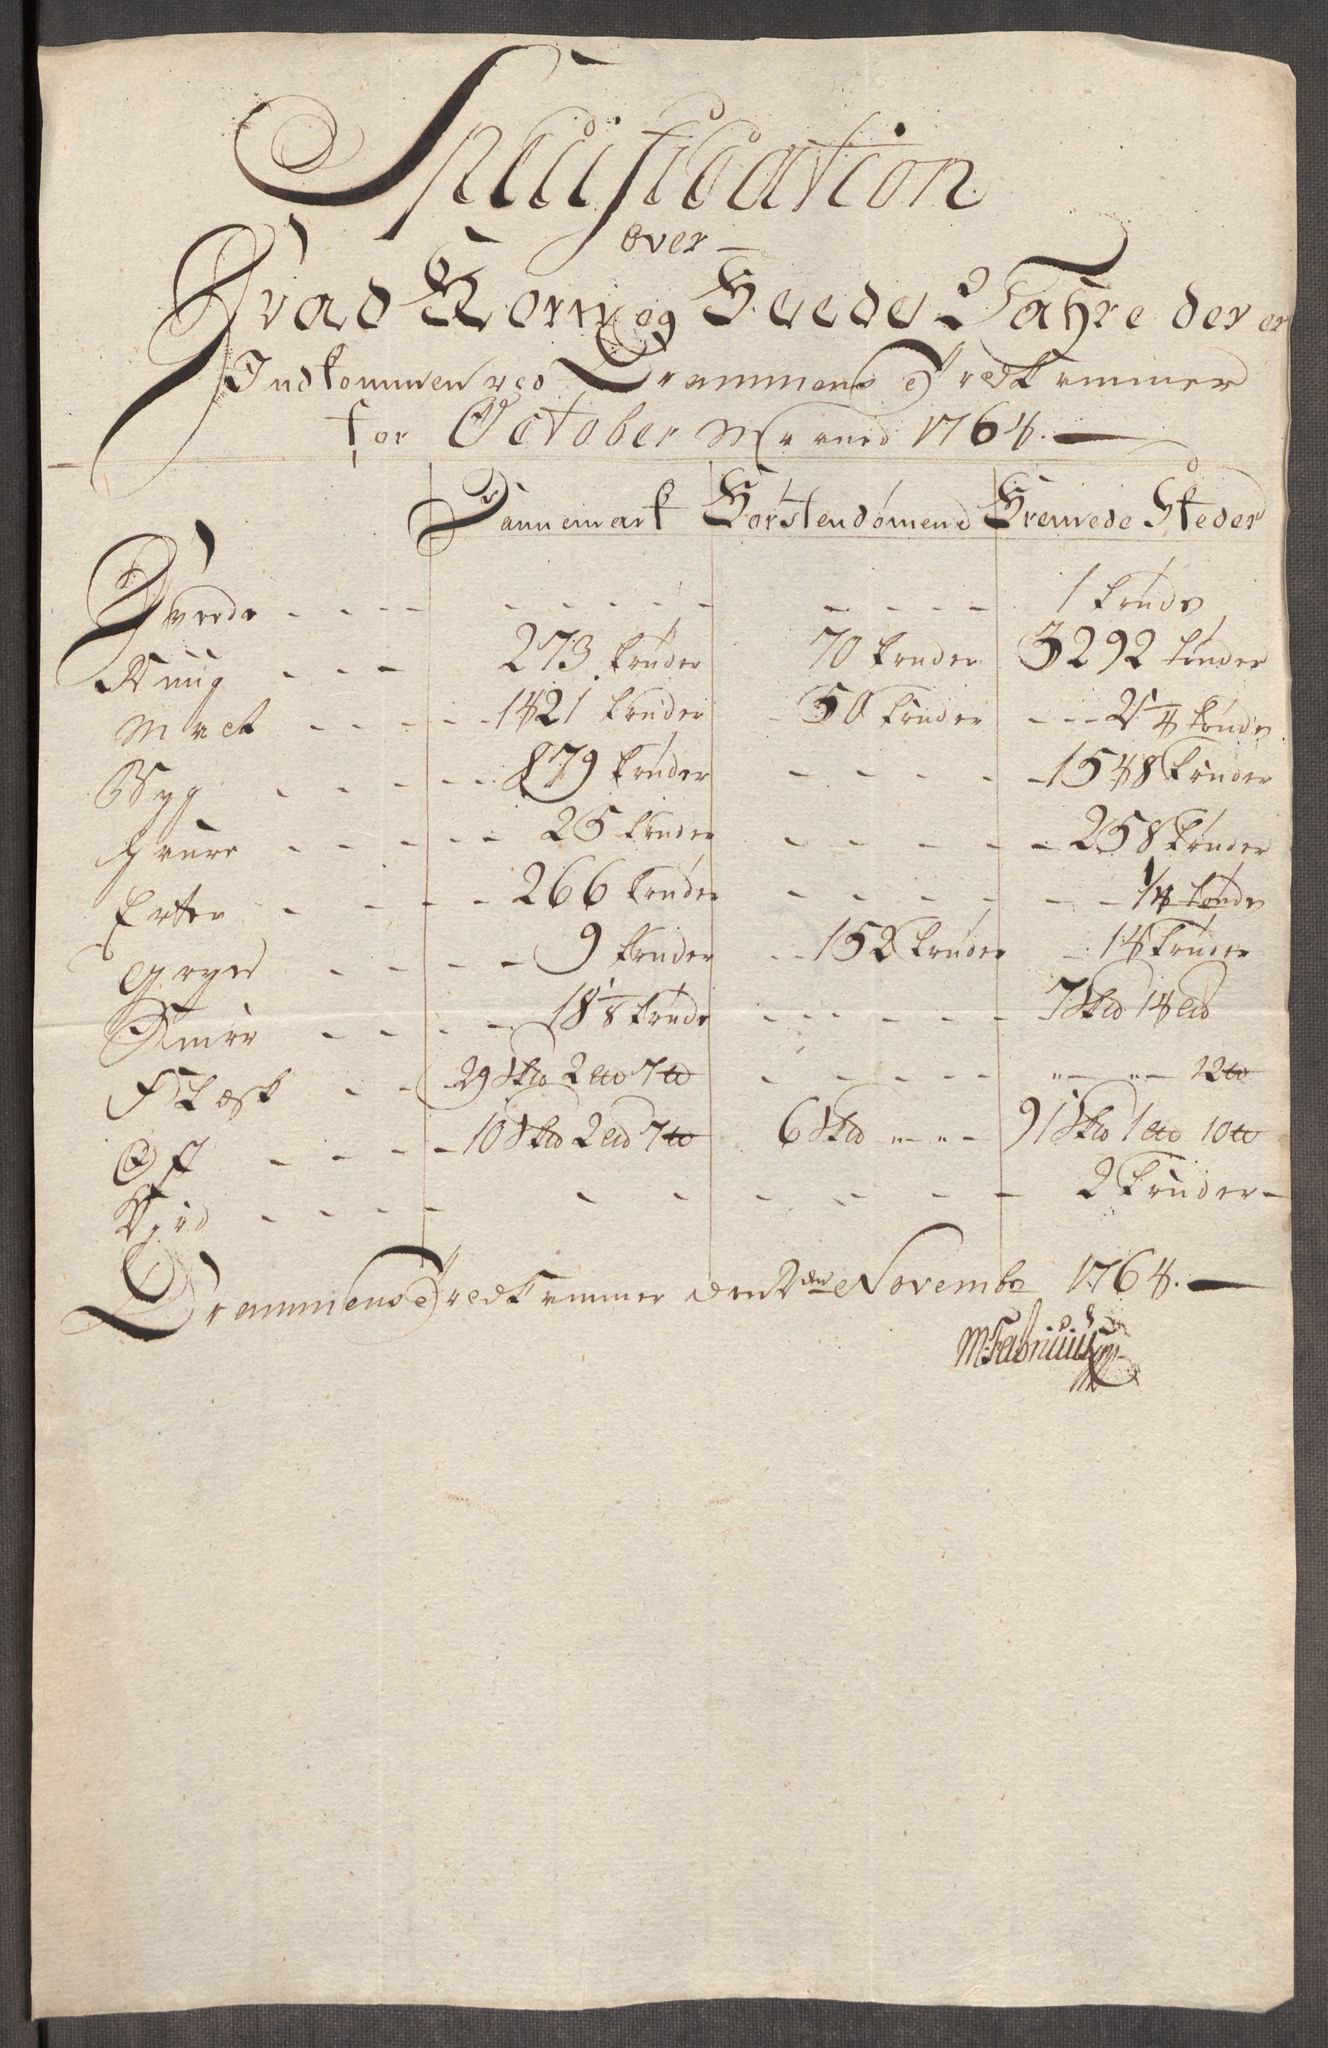 Specification
over
Hvad Korn og Feede Vahre der er
Indkommen ved Drammens Tredkammer
for October Maaned 1764.
Dannemark Förstendömene Fremede Steder
Hvede - - - - - - - - - - - - - 1 tönde
Rug - - - 273 tönder 70 tönder 3292 tönder
Malt - - - - - 1421 tönder - 50 tönder - - - 2 1/4 tönde
Byg - - - - - 879 tönder - - - - 1548 tönder
Haure - - - - - 25 tönder - - - - - 258 tönder
Erter - - - - 266 tönder - - - - - - 1/4 tönde
Gryn - - - - 9 tönder - - 152 tönder - 14 tönder
Smör - - - - 18 1/8 tönde - - - - - 7 Skd 14 Ld
Flæsk - - 29 Skd 2 Ld 7 td - - - - - " — " — 12 td
Ost - - - - - 10 Skd 2 Ld 7 td 6 Skd " — " — 91 Skd 1 Ld 10 td
Kiöd - - - - - - - - - - 2 tönder -
Drammens Tredkammer den 2den Novembr 1764.
M: Fabricius